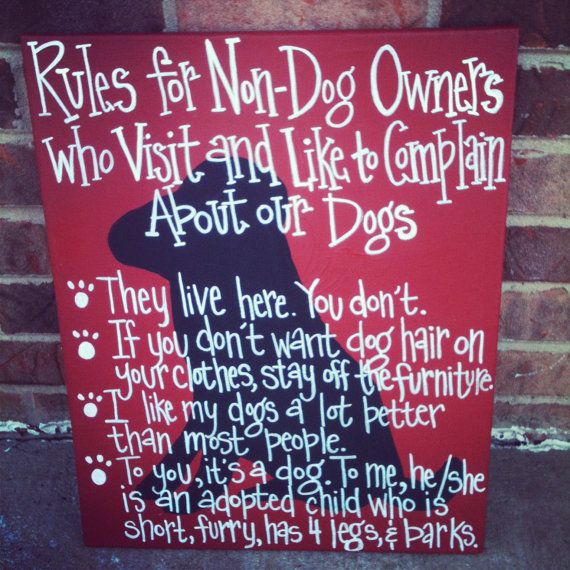 Rules for Non-Dog Owners
Who Visit and Like to Complain
About our Dogs
They live here. You don't.
If you don't want dog hair on
your clothes, stay off the furniture.
I like my dogs a lot petter
than most people.
To you, it's a dog. To me, he/she
is an adopted child who is
short, furry, has 4 legs, & barks.